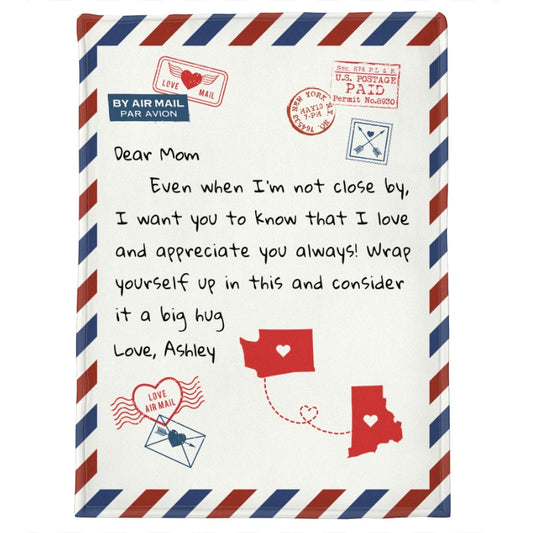 LOVE MAIL
BY AIR MAIL
PAR AVION
Sec. 574 P.L & R
U.S. POSTAGE
PAID
Permit No.8930
NEW YORK N.Y.
MAY 23
7-PM
Dear Mom
Even when I'm not close by,
I want you to know that I love
and appreciate you always! Wrap
yourself up in this and consider
it a big hug
Love, Ashley
LOVE
AIR MAIL